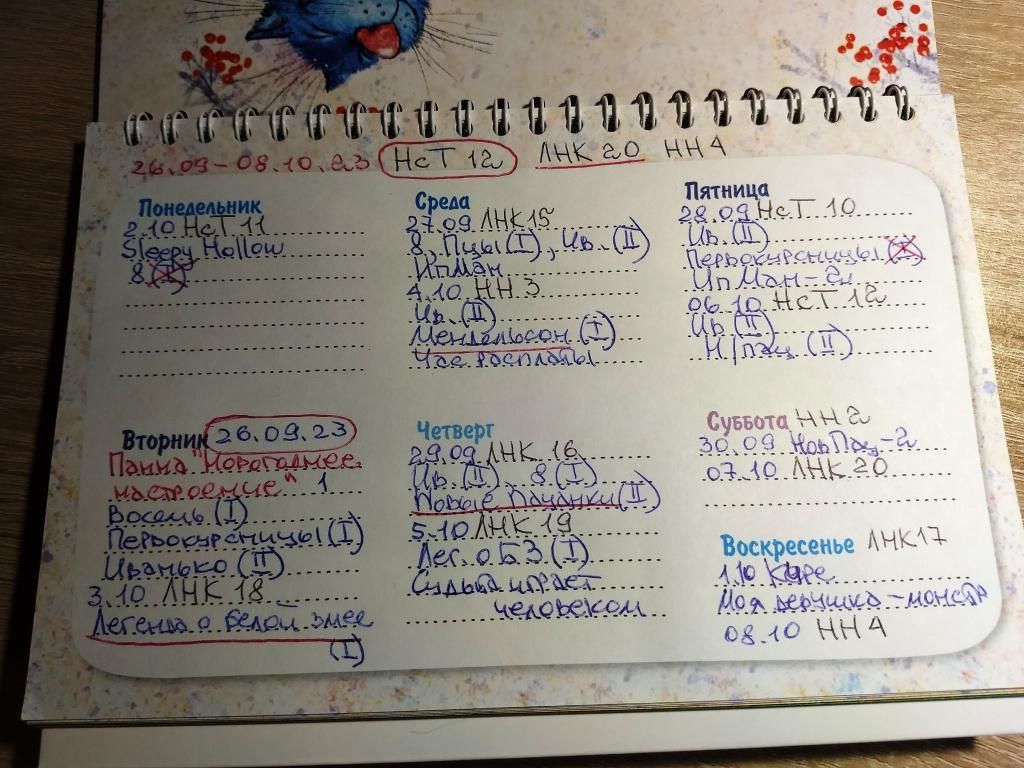 26.09 – 08.10.23 НсТ 12 ЛНК 20 НН 4
Понедельник
2.10 НсТ 11
Sleepy Hollow
8 (I)
Вторник 26.09.23
Панна "Новогоднее
настроение" 1
Восемь (I)
Первокурсницы (I)
Иванько (II)
3.10 ЛНК 18
Легенда о белой змее
(I)
Среда
27.09 ЛНК 15
8, Пцы (I), Ив. (II)
ИпМан
4.10 НН 3
Ив. (II)
Мендельсон (I)
Час расплаты
Четверг
29.09 ЛНК 16
Ив. (II), 8 (I)
Новые Пацанки (II)
5.10 ЛНК 19
Лег. о БЗ (I)
Судьба играет
человеком
Пятница
28.09 НсТ 10
Ив. (II)
Первокурсницы (I)
ИпМан-2
06.10 НсТ 12
Ив (II)
Н/пац (II)
Суббота НН 2
30.09 НовПац-2
07.10 ЛНК 20
Воскресенье ЛНК17
1.10 Кяре
Моя девушка – монстр
08.10 НН 4